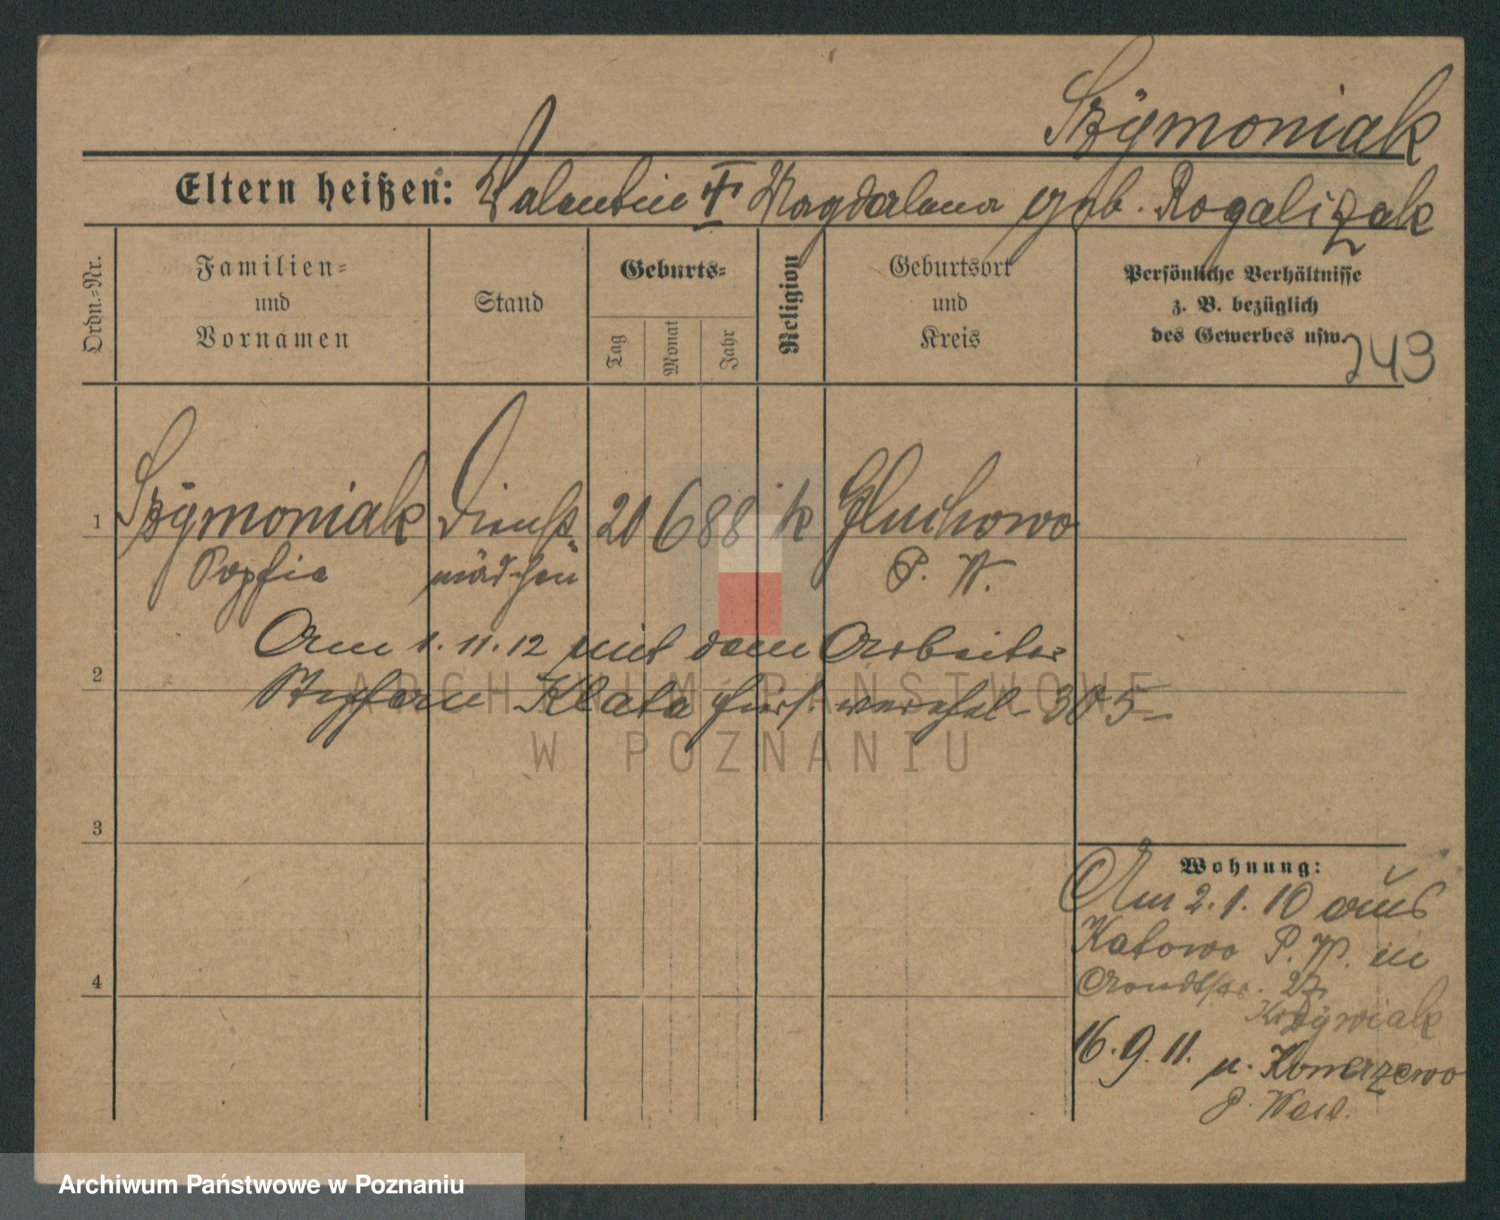 Szÿmoniak
Eltern heißen: Valentin † Magdalena geb. Rogalizak
Ordn.-Nr.
Familien-
und
Vornamen
Stand
Geburts-
Tag
Monat
Jahr
Religion
Geburtsort
und
Kreis
Persönliche Verhältnisse
z. B. bezüglich
des Gewerbes usw.
243
1 Szÿmoniak Dienst- 20 6 88 k Gluchowo
Sophie mädchen P. W.
Am 1.11.12 mit dem Arbeiter
2
Stephan Klata
305
3
4
Wohnung:
Am 2.1.10 aus
Katowo P. W. in
Arndtstr. 27
16.9.11. n. Konarzewo
P. West.
ARCHIWUM PAŃSTWOWE
W POZNANIU
Archiwum Państwowe w Poznaniu